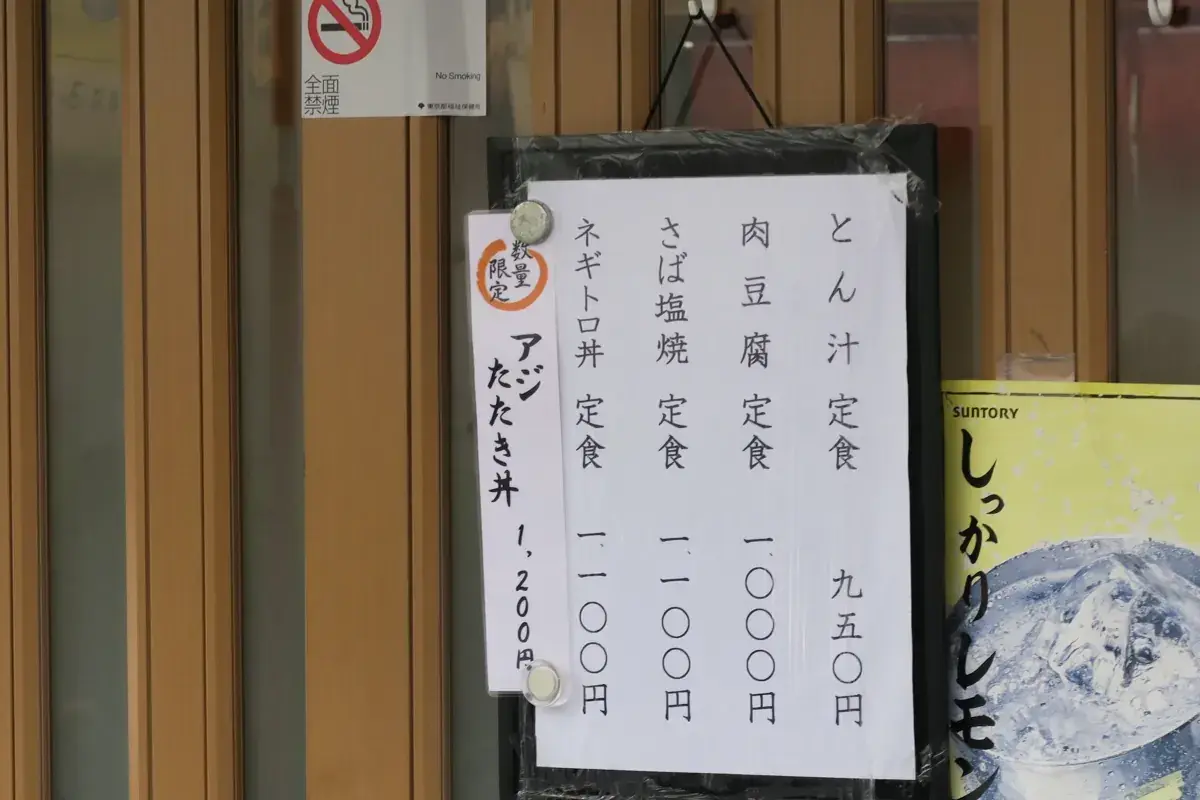 全面
禁煙
No Smoking
東京都福祉保健局
とん汁定食 九五〇円
肉豆腐定食 一、〇〇〇円
さば塩焼定食 一、一〇〇円
ネギトロ丼定食 一、一〇〇円
数量
限定
アジ
たたき丼
1,200円
SUNTORY
しっかりレモン